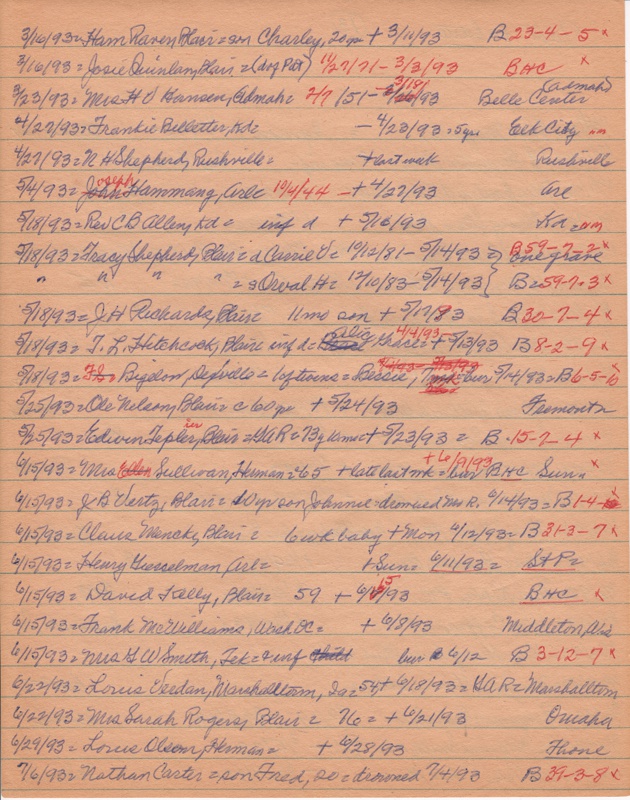 3/16/93 = Ham Raven, Blair = son Charley, 20 yr + 3/11/93 B 23-4-5 x
3/16/93 = Josie Quinlan, Blair = (drg Pat) 11/27/71 - 3/3/93 BHC x
3/23/93 = Mrs H V Hansen, Admah = 2/7/51 - 3/18/93 Belle Center (Admah)
4/27/93 = Frankie Billetter, Kd = - 4/23/93 = 5 yr Elk City nm
4/27/93 = N H Shepherd, Rushville = + last week Rushville
5/4/93 = Joseph Hammang, Arlc 10/4/44 - + 4/27/93 Arl
5/18/93 = Rev C B Allen, Kd = inf d + 5/16/93 Kd = nm
5/18/93 = Tracy Shepherd, Blair = d Carrie V = 10/12/81 - 5/14/93 = } one grave B 59-7-2 x
" " " " = s Orval H = 12/10/83 - 5/14/93 } B = 59-7-3 x
5/18/93 = J H Richards, Blair 11 mo son + 5/17/93 B 30-7-4 x
5/18/93 = T. L. Hitchcock, Blair inf d = Alia Grace = 4/4/93 + 5/13/93 B 8-2-9 x
5/18/93 = Bigdon, DeSville = twins = Bessie, bur 5/14/93 = B 6-5-10
5/25/93 = Ole Nelson, Blair = c 60 yr + 5/24/93 Fremont
5/25/93 = Edwin Tepler, Blair = GAR = 73 y + 5/23/93 = B-15-7-4 x
6/15/93 = Mrs Ellen Sullivan, Herman = 65 + late last wk = + 6/9/93 bur BHC Sun = x
6/15/93 = J B Vertz, Blair = 10 yr son Johnnie = drowned Mo R. 6/14/93 = B 1-4-
6/15/93 = Claus Mencke, Blair = 6 wk baby + Mon 6/12/93 = B 31-3-7 x
6/15/93 = Henry Giesselman, Arl = + Sun = 6/11/93 = St P =
6/15/93 = David Kelly, Blair = 59 + 6/15/93 BHC x
6/15/93 = Frank McWilliams, Wash DC = + 6/8/93 Middleton, Wis
6/15/93 = Mrs G W Smith, Tek = & inf child bur 6/12 B 3-12-7 x
6/22/93 = Louis Verdan, Marshalltown, Ia = 54 + 6/18/93 = GAR = Marshalltown
6/22/93 = Mrs Sarah Rogers, Blair = 76 = + 6/21/93 Omaha
6/29/93 = Louis Olson, Herman = + 6/28/93 Fhone
7/6/93 = Nathan Carter = son Fred, 20 = drowned 7/4/93 B 39-3-8 x